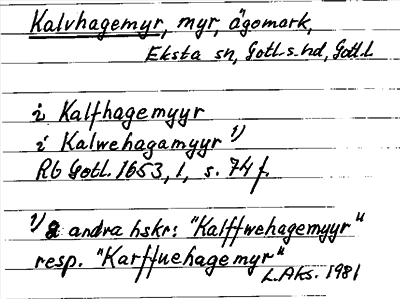 Kalvhagemyr, myr, ägomark,
Eksta sn, Gotl. s. hd, Gotl. l
i Kalfhagemyyr
i Kalwehagamyyr 1)
Rb Gotl. 1653, 1, s. 74 f.
1) 2 andra hskr: "Kalffwehagemyyr"
resp. "Karffuehagemyr"
L.Aks. 1981